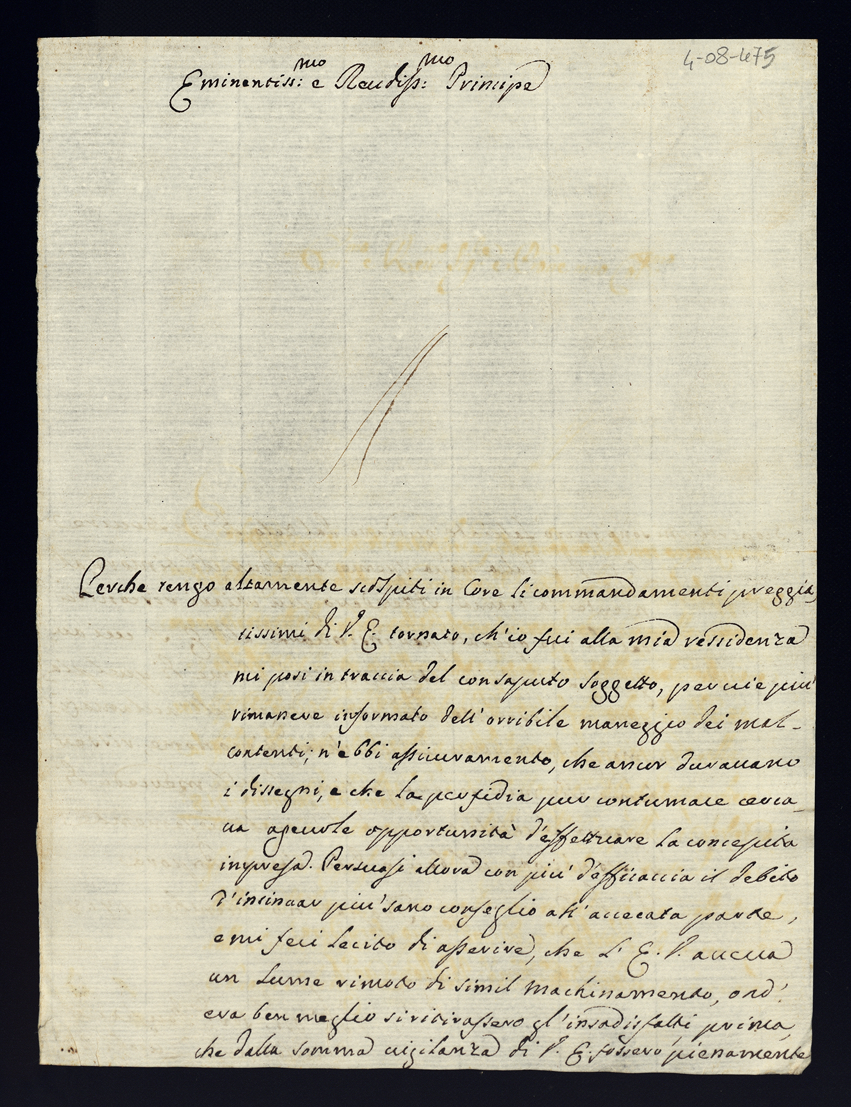 4-08-475
Eminentiss:mo e Reudiss:mo Principe
Perche tengo altamente scolpiti in Core li commandamenti preggia,
tissimi di V. E. tornato, ch'io fui alla mia ressidenza
mi posi in traccia del consaputo soggetto, per uie più
rimanere informato dell'orribile maneggio dei mal-
contenti; n'ebbi assicuramento, che ancor durauano
i dissegni, e che la perfidia pur contumace cerca-
ua ageuole opportunità d'effettuare la concepita
impresa. Persuasi allora con più d'efficaccia il debito
d'insinuar più sano conseglio all'accecata parte,
e mi feci lecito di asserire, che L'E. V. aueua
un Lume rimoto di simil machinamento, ond'
era ben meglio si ritirassero gl'insodisfatti prima,
che dalla somma uigilanza di V. E. fossero pienamente